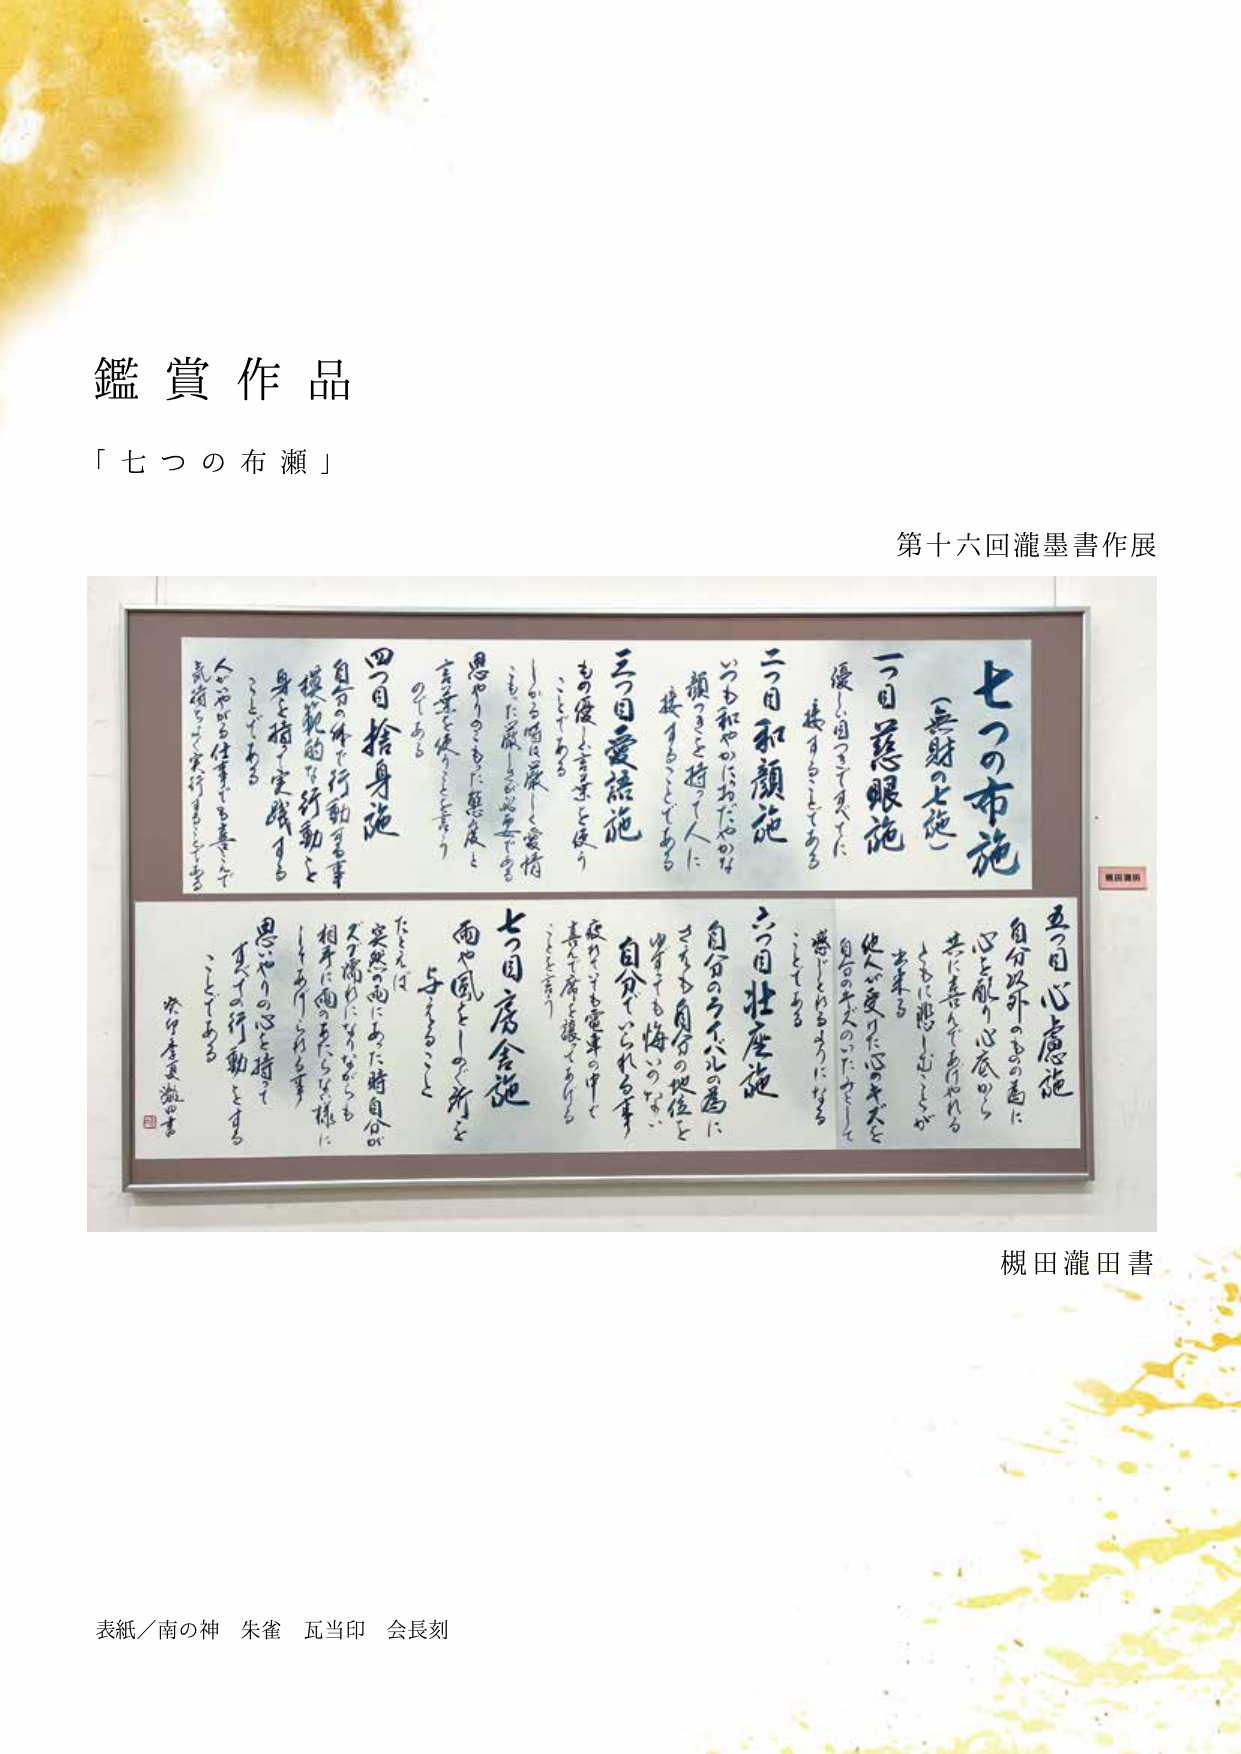 鑑賞作品
「七つの布瀬」
第十六回瀧墨書作展
七つの布施
(無財の七施)
一つ目 慈眼施
優しい目つきですべてに
接することである
二つ目 和顔施
いつも和やかにおだやかな
顔つきを持って人に
接することである
三つ目 愛語施
もの優しい言葉を使う
ことである
しかる時は厳しく愛情
こもった厳しさが必要である
思やりのこもった態度と
言葉を使うことを言う
のである
四つ目 捨身施
自分の体で行動する事
模範的な行動を
身を持って実践する
ことである
人がいやがる仕事でも喜こんで
気持ちよく実行することである
五つ目 心慮施
自分以外のものの為に
心を配り心底から
共に喜んであげやれる
ともに悲しむことが
出来る
他人が受けた心のキズを
自分のキズのいたみとして
感じとれるようになる
ことである
六つ目 壮座施
自分のライバルの為に
さえも自分の地位を
ゆずても悔いのない
自分でいられる事
疲れていても電車の中で
喜んで席を譲ってあげる
ことを言う
七つ目 房舎施
雨や風をしのぐ所を
与えること
たとえば
突然の雨にあった時自分が
ズブ濡れになりながらも
相手に雨のあたらない様に
してあげられる事
思いやりの心を持って
すべての行動をする
ことである
癸卯季夏 瀧田書
槻田瀧田
槻田瀧田書
表紙／南の神　朱雀　瓦当印　会長刻